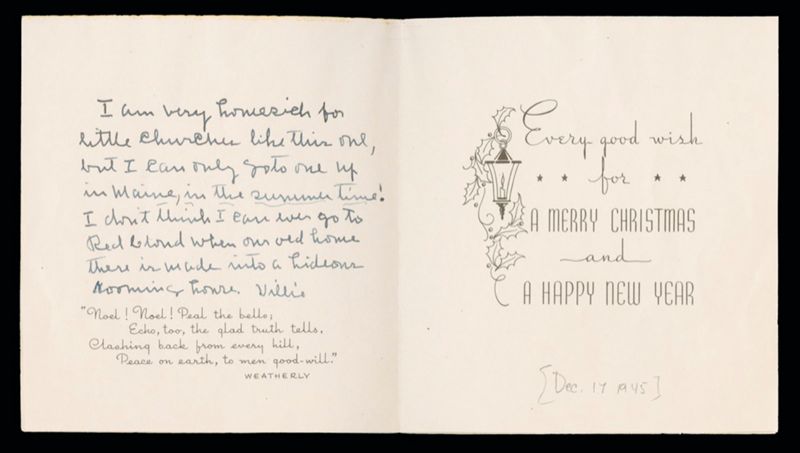 I am very homesick for
little churches like this one,
but I can only go to one up
in Maine, in the summer time!
I don't think I can ever go to
Red Cloud when our old home
there is made into a hideous
rooming house. Willie
"Noel! Noel! Peal the bells;
Echo, too, the glad truth tells,
Clashing back from every hill,
Peace on earth, to men good-will."
WEATHERLY
Every good wish
for
A MERRY CHRISTMAS
and
A HAPPY NEW YEAR
[Dec. 17 1945]